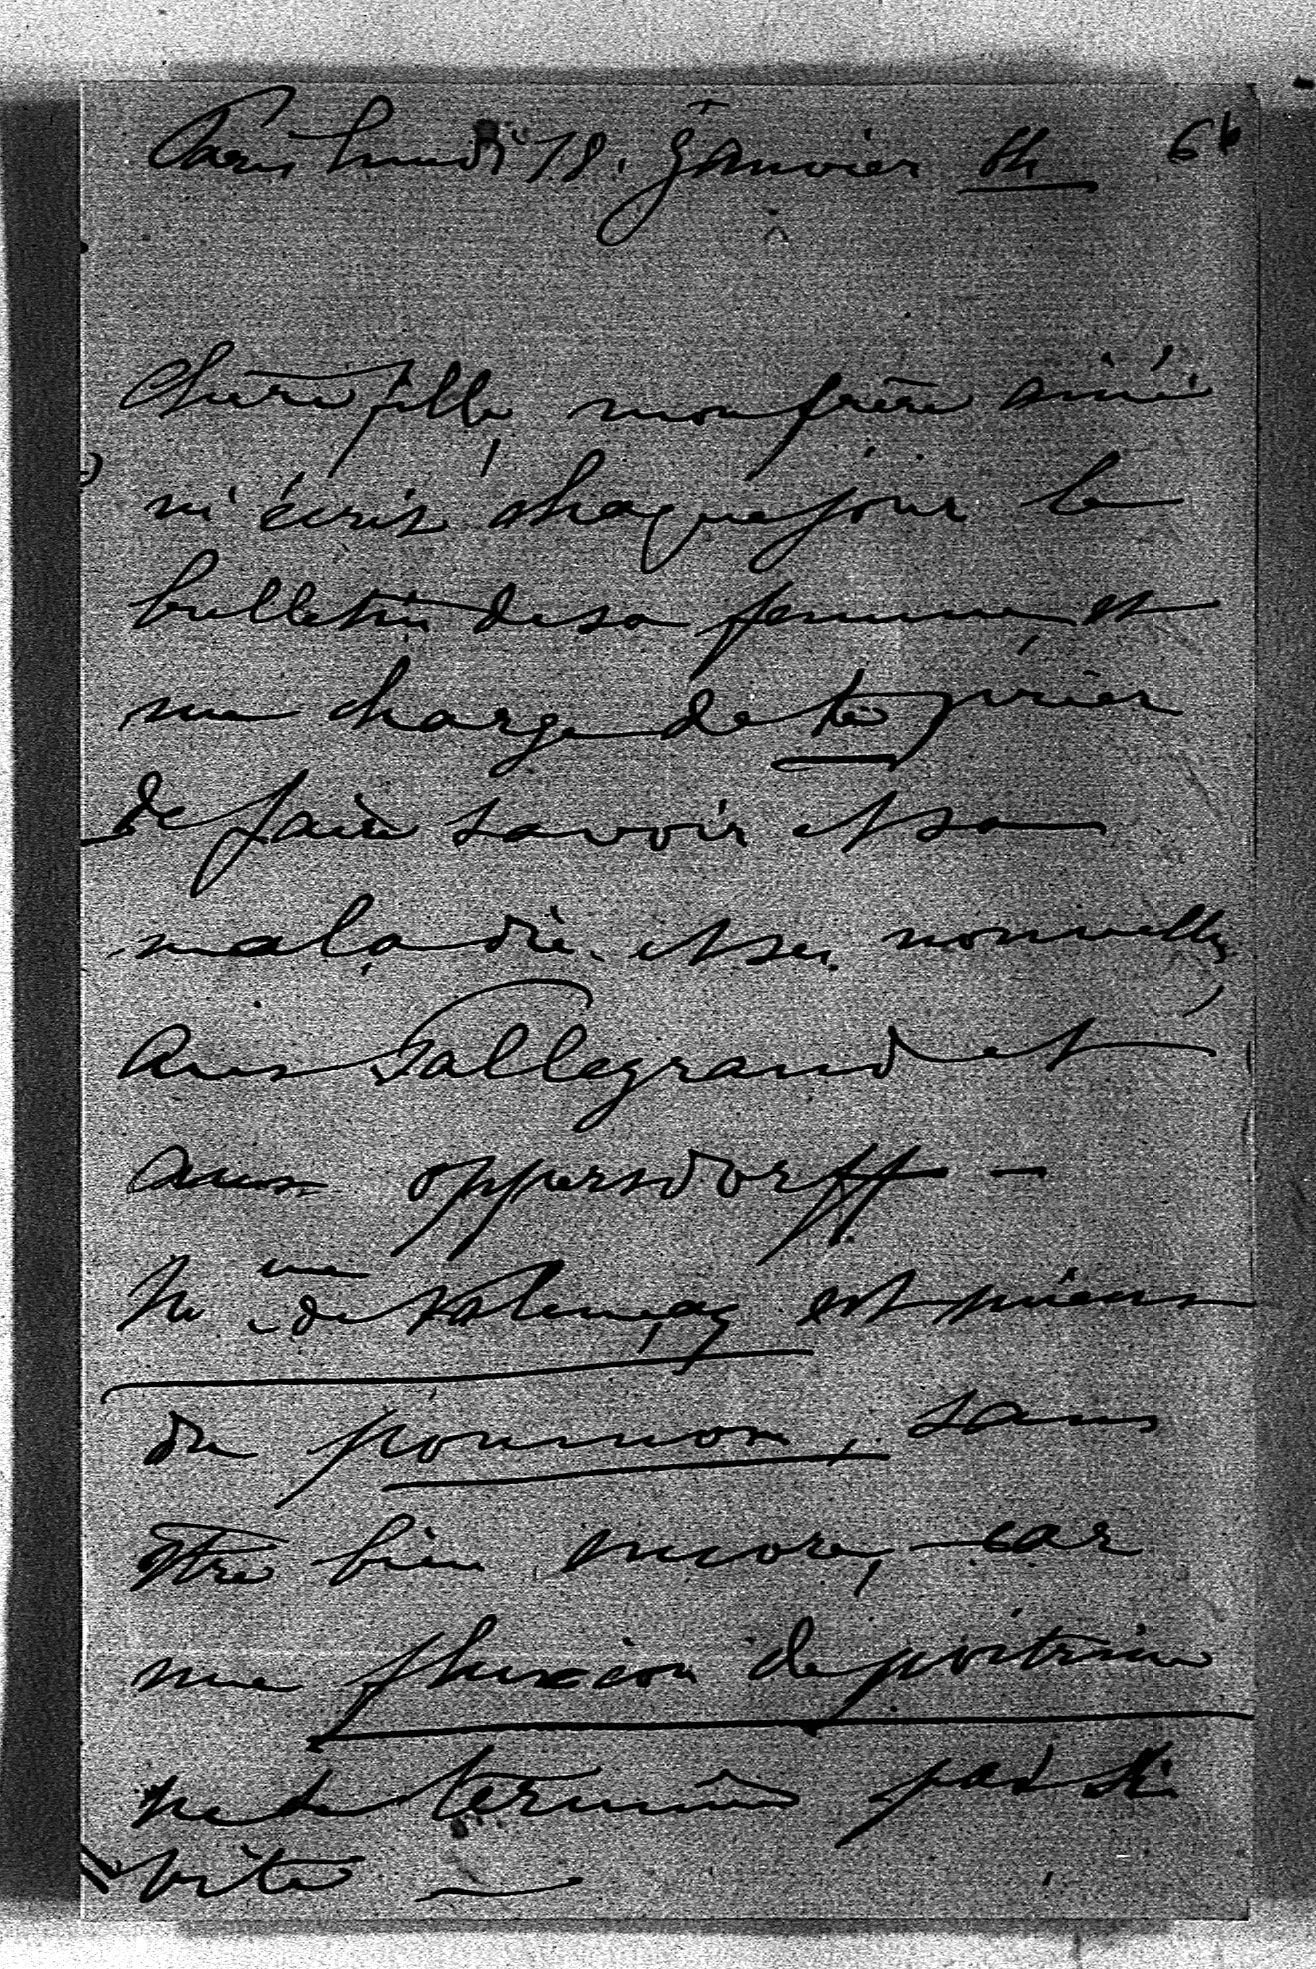 Paris lundi 18. Janvier 6h
Chère fille, mon frère aîné
m'écrit chaque jour le
bulletin de sa femme et
me charge de te prier
de faire savoir et sa
maladie. et ses nouvelles,
aux Tallegrand et
aux Oppersdorff —
Mme de Valençay est mieux
du poumon, sans
être bien encore, car
une fluxion de poitrine
ne se termine pas si
vite —